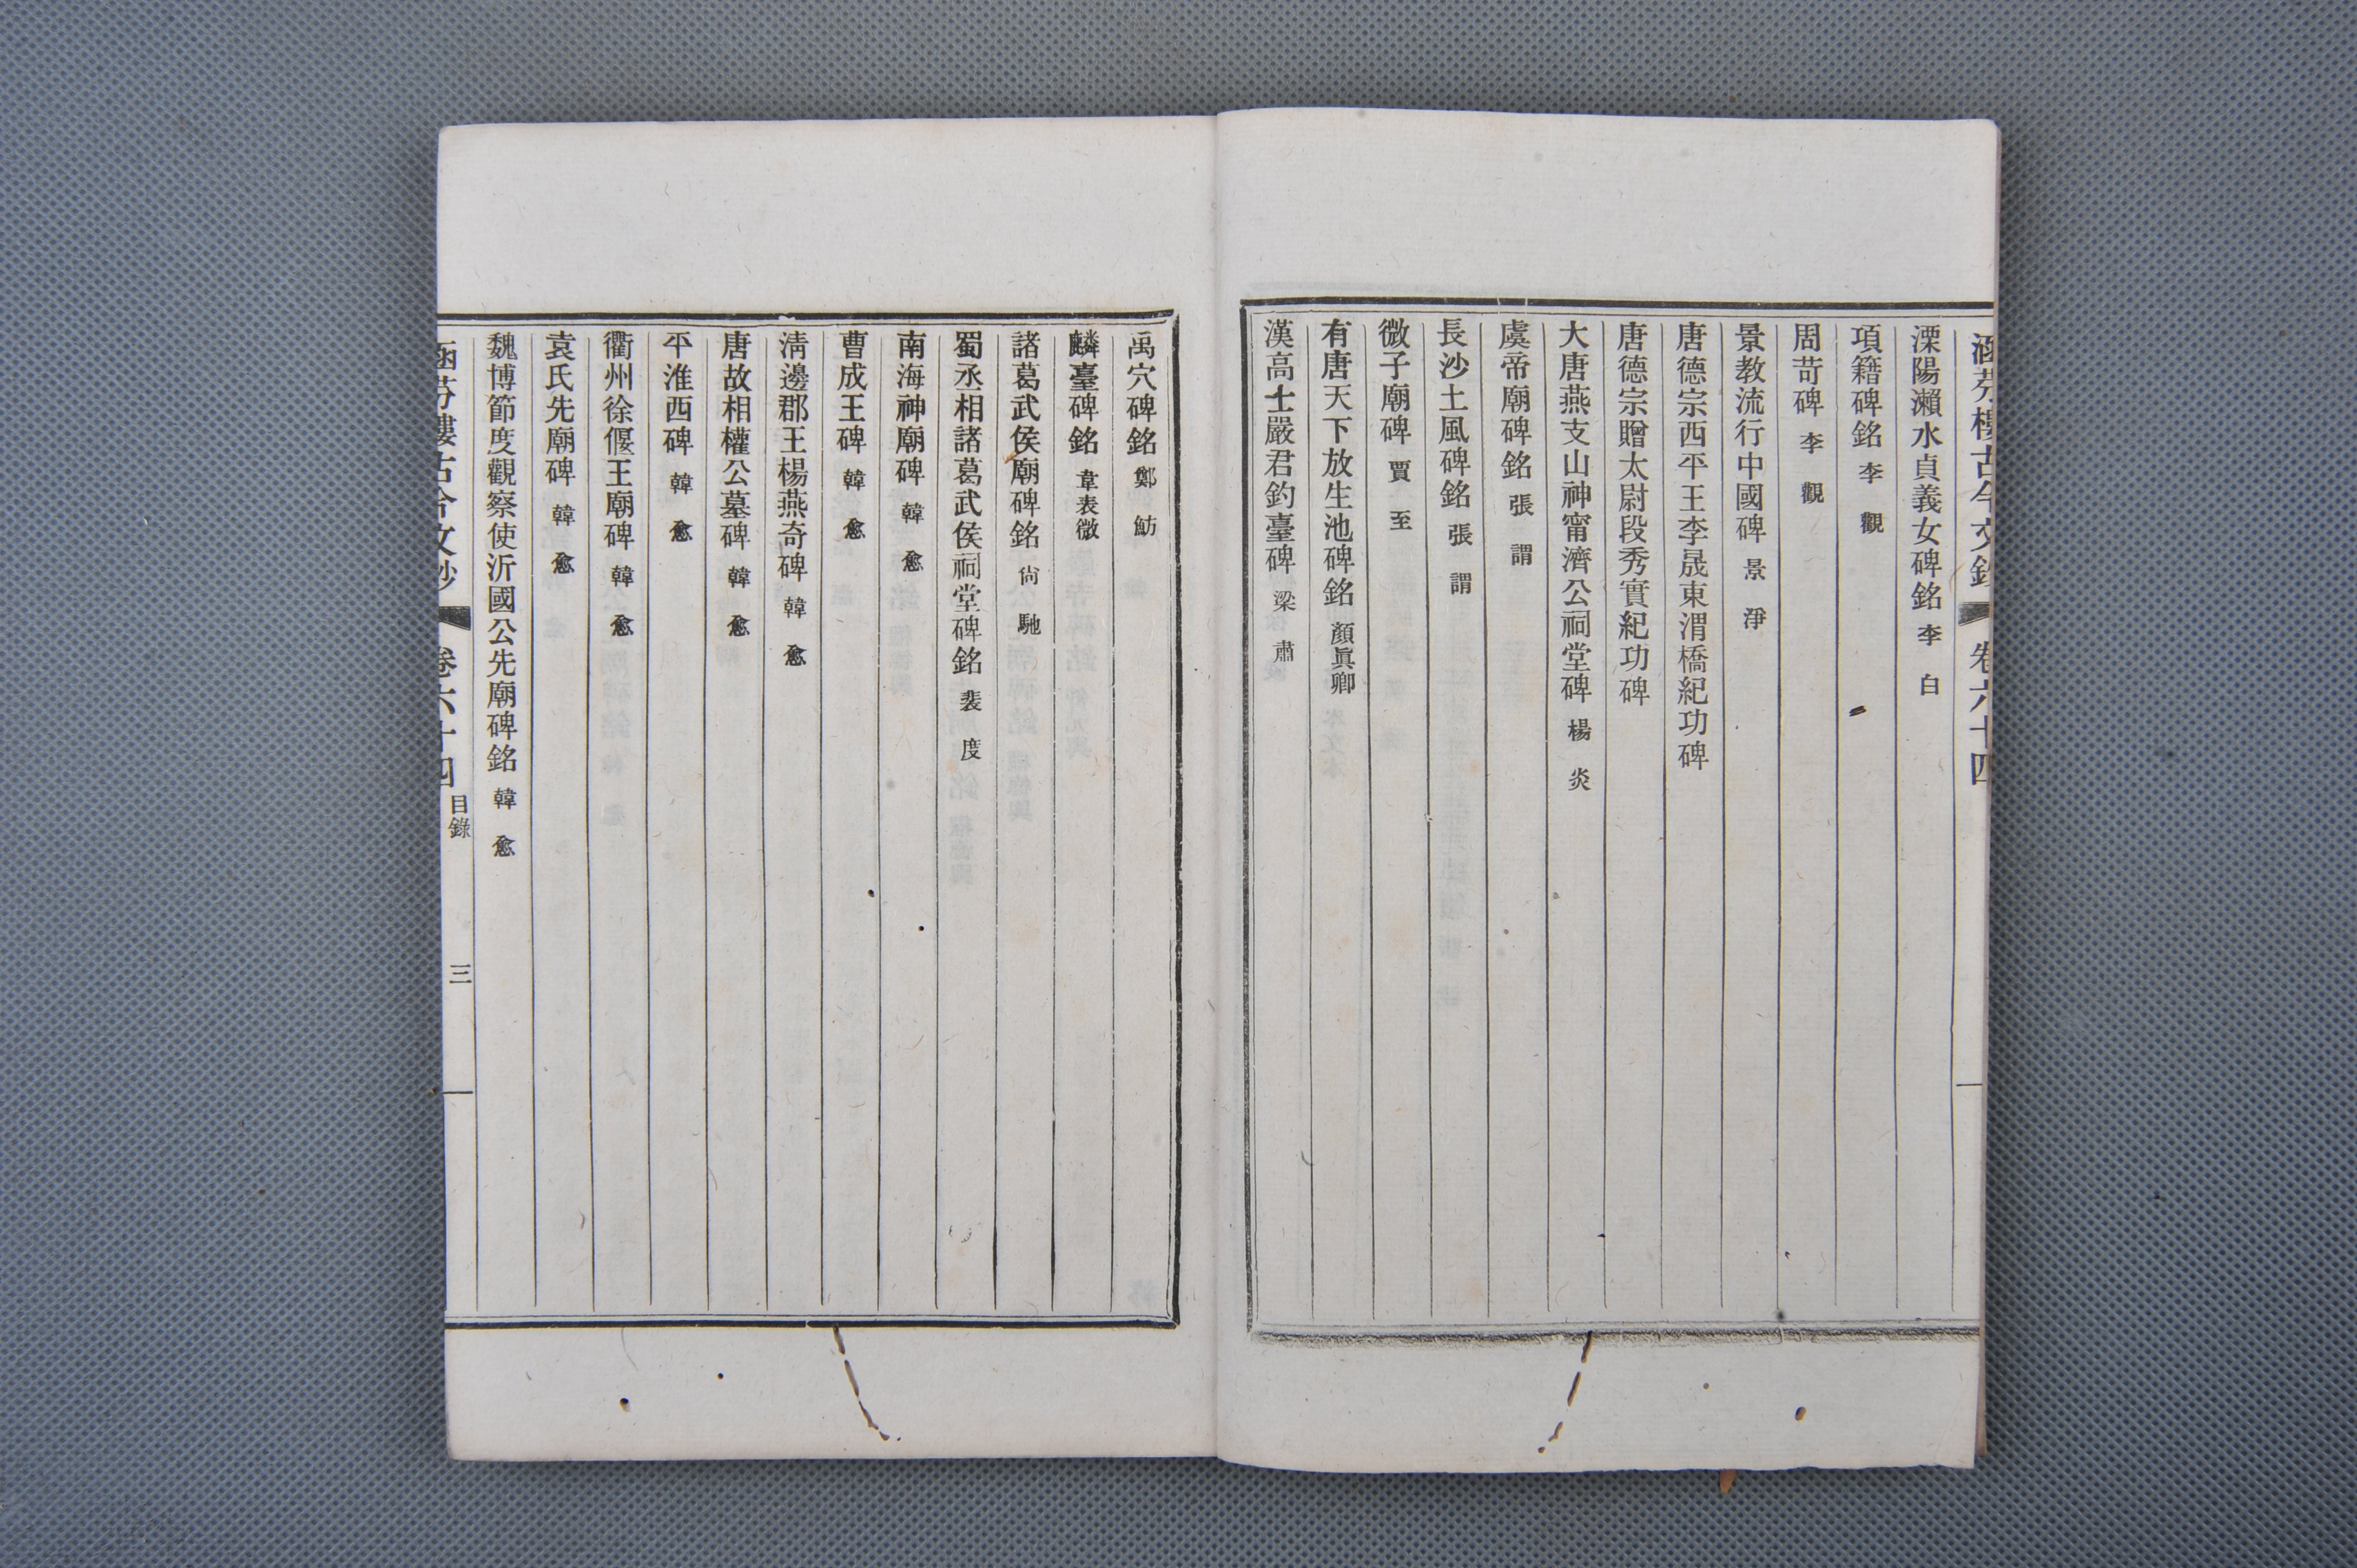 涵芬樓古今文鈔 卷六十四
溧陽瀨水貞義女碑銘 李白
項籍碑銘 李觀
周苛碑 李觀
景教流行中國碑 景淨
唐德宗西平王李晟東渭橋紀功碑
唐德宗贈太尉段秀實紀功碑
大唐燕支山神甯濟公祠堂碑 楊炎
虞帝廟碑銘 張謂
長沙土風碑銘 張謂
微子廟碑 賈至
有唐天下放生池碑銘 顏眞卿
漢高士嚴君釣臺碑 梁肅
禹穴碑銘 鄭魴
麟臺碑銘 韋表微
諸葛武侯廟碑銘 尙馳
蜀丞相諸葛武侯祠堂碑銘 裴度
南海神廟碑 韓愈
曹成王碑 韓愈
淸邊郡王楊燕奇碑 韓愈
唐故相權公墓碑 韓愈
平淮西碑 韓愈
衢州徐偃王廟碑 韓愈
袁氏先廟碑 韓愈
魏博節度觀察使沂國公先廟碑銘 韓愈
涵芬樓古今文鈔 卷六十四 目錄 三